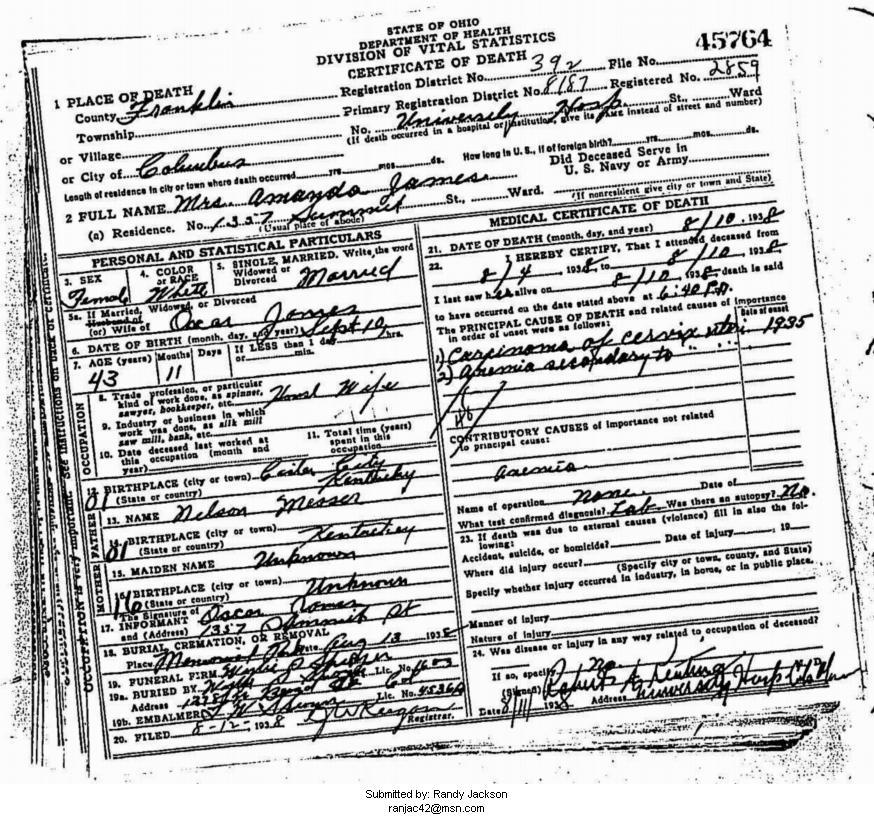 STATE OF OHIO
DEPARTMENT OF HEALTH
DIVISION OF VITAL STATISTICS
CERTIFICATE OF DEATH
45764
1 PLACE OF DEATH
County Franklin
Registration District No. 392 File No.
Township
Primary Registration District No. 8187 Registered No. 2859
or Village
No. University Hosp. St., Ward
(If death occurred in a hospital or institution, give its NAME instead of street and number)
or City of Columbus
Length of residence in city or town where death occurred yrs. mos. ds. How long in U. S., if of foreign birth? yrs. mos. ds.
2 FULL NAME Mrs. Amanda James
Did Deceased Serve in
U. S. Navy or Army
(a) Residence. No. 1357 Summit St., Ward.
(Usual place of abode)
(If nonresident give city or town and State)
PERSONAL AND STATISTICAL PARTICULARS
3. SEX
Female
4. COLOR
or RACE
White
5. SINGLE, MARRIED, Write the word
Widowed or
Divorced
Married
5a. If Married, Widowed, or Divorced
Husband of
(or) Wife of Oscar James
6. DATE OF BIRTH (month, day, and year) Sept 10
7. AGE (years) Months Days If LESS than 1 day
hrs.
or min.
43 11
OCCUPATION
8. Trade profession, or particular
kind of work done, as spinner,
sawyer, bookkeeper, etc.
House Wife
9. Industry or business in which
work was done, as silk mill
saw mill, bank, etc.
10. Date deceased last worked at
this occupation (month and
year)
11. Total time (years)
spent in this
occupation
12. BIRTHPLACE (city or town) Carter City
(State or country) Kentucky
01
FATHER
13. NAME Nelson Messer
14. BIRTHPLACE (city or town) Kentuckey
(State or country)
01
MOTHER
15. MAIDEN NAME Unknown
16. BIRTHPLACE (city or town) Unknown
(State or country)
16
The Signature of
17. INFORMANT Oscar James
and (Address) 1357 Summit St
18. BURIAL, CREMATION, OR REMOVAL
Place Memorial Park Date Aug 13 1938
19. FUNERAL FIRM
Lic. No. 1603
19a. BURIED BY
Address
Lic. No. 4536A
19b. EMBALMER
20. FILED 8-12- 1938
Registrar.
MEDICAL CERTIFICATE OF DEATH
21. DATE OF DEATH (month, day, and year) 8/10 1938
22. I HEREBY CERTIFY, That I attended deceased from
8/4 1938, to 8/10, 1938
I last saw her alive on 8/10 1938 death is said
to have occurred on the date stated above at 6:40 P.M.
The PRINCIPAL CAUSE OF DEATH and related causes of importance
in order of onset were as follows:
Date of onset
1) Carcinoma of cervix uteri 1935
2) Anemia secondary to " " "
CONTRIBUTORY CAUSES of importance not related
to principal cause:
Anemia
Name of operation None Date of
What test confirmed diagnosis? Lab Was there an autopsy? No.
23. If death was due to external causes (violence) fill in also the fol-
lowing:
Accident, suicide, or homicide? Date of injury , 19
Where did injury occur?
(Specify city or town, county, and State)
Specify whether injury occurred in industry, in home, or in public place.
Manner of injury
Nature of injury
24. Was disease or injury in any way related to occupation of deceased?
If so, specify No.
(Signed)
Date 8/11 1938 Address University Hosp
OCCUPATION is very important. See instructions on back of certificate.
Submitted by: Randy Jackson
ranjac42@msn.com